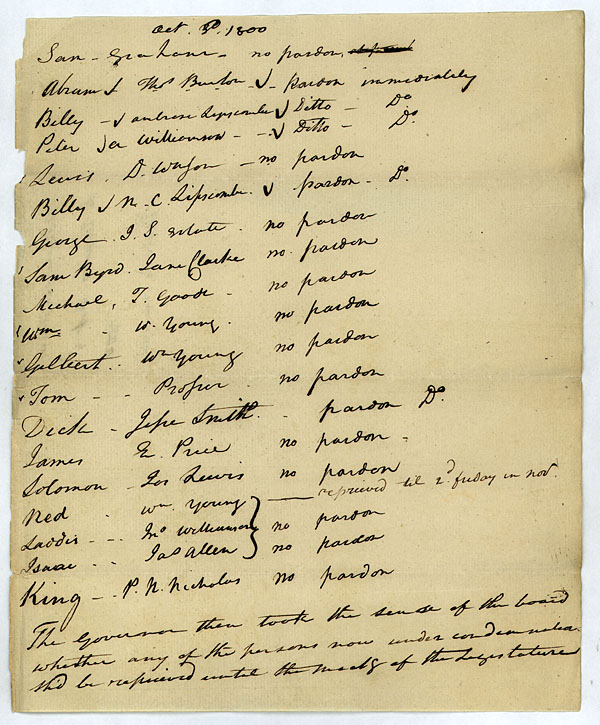 Oct. 3d. 1800
Sam - Graham - no pardon,
Abram √ Thos Burton - √ - pardon immediately
Billy - √ ambrose Lipscombe √ Ditto - Do
Peter √ Williamson - - √ Ditto - Do.
Lewis. D. - no pardon
Billy √ N. C. Lipscombe. √ pardon - Do.
George. J. S. estate. no pardon
Sam Byrd. Jane Clarke no pardon
Michael, T. Goode - no pardon
Wm - W. Young. no pardon
Gilbert. - Wm Young no pardon
Tom - - Prosser - no pardon
Dick - Jesse Smith. - pardon Do.
James E. Price no pardon -
Solomon - Jos Lewis no pardon
Ned - Wm. Young - reprieved til 2d. friday in Novr.
Laddis - - Jno Williamson no pardon
Isaac - - Jas Allen no pardon
King - - P. N. Nicholas no pardon
The Governor then took the sense of the board
whether any of the persons now under condemnation
shd be reprieved until the meetg of the Legislature